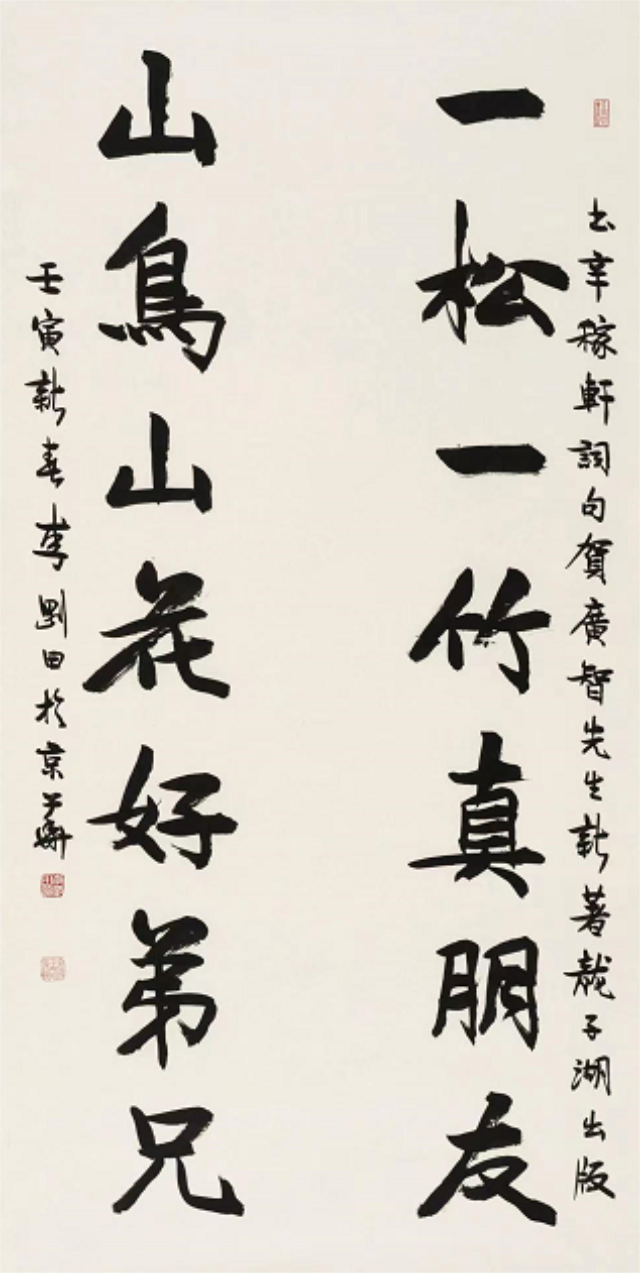 书辛稼軒詞句賀廣智先生新著龍子湖出版
一松一竹真朋友
山鳥山花好弟兄
壬寅新春李劉田於京華